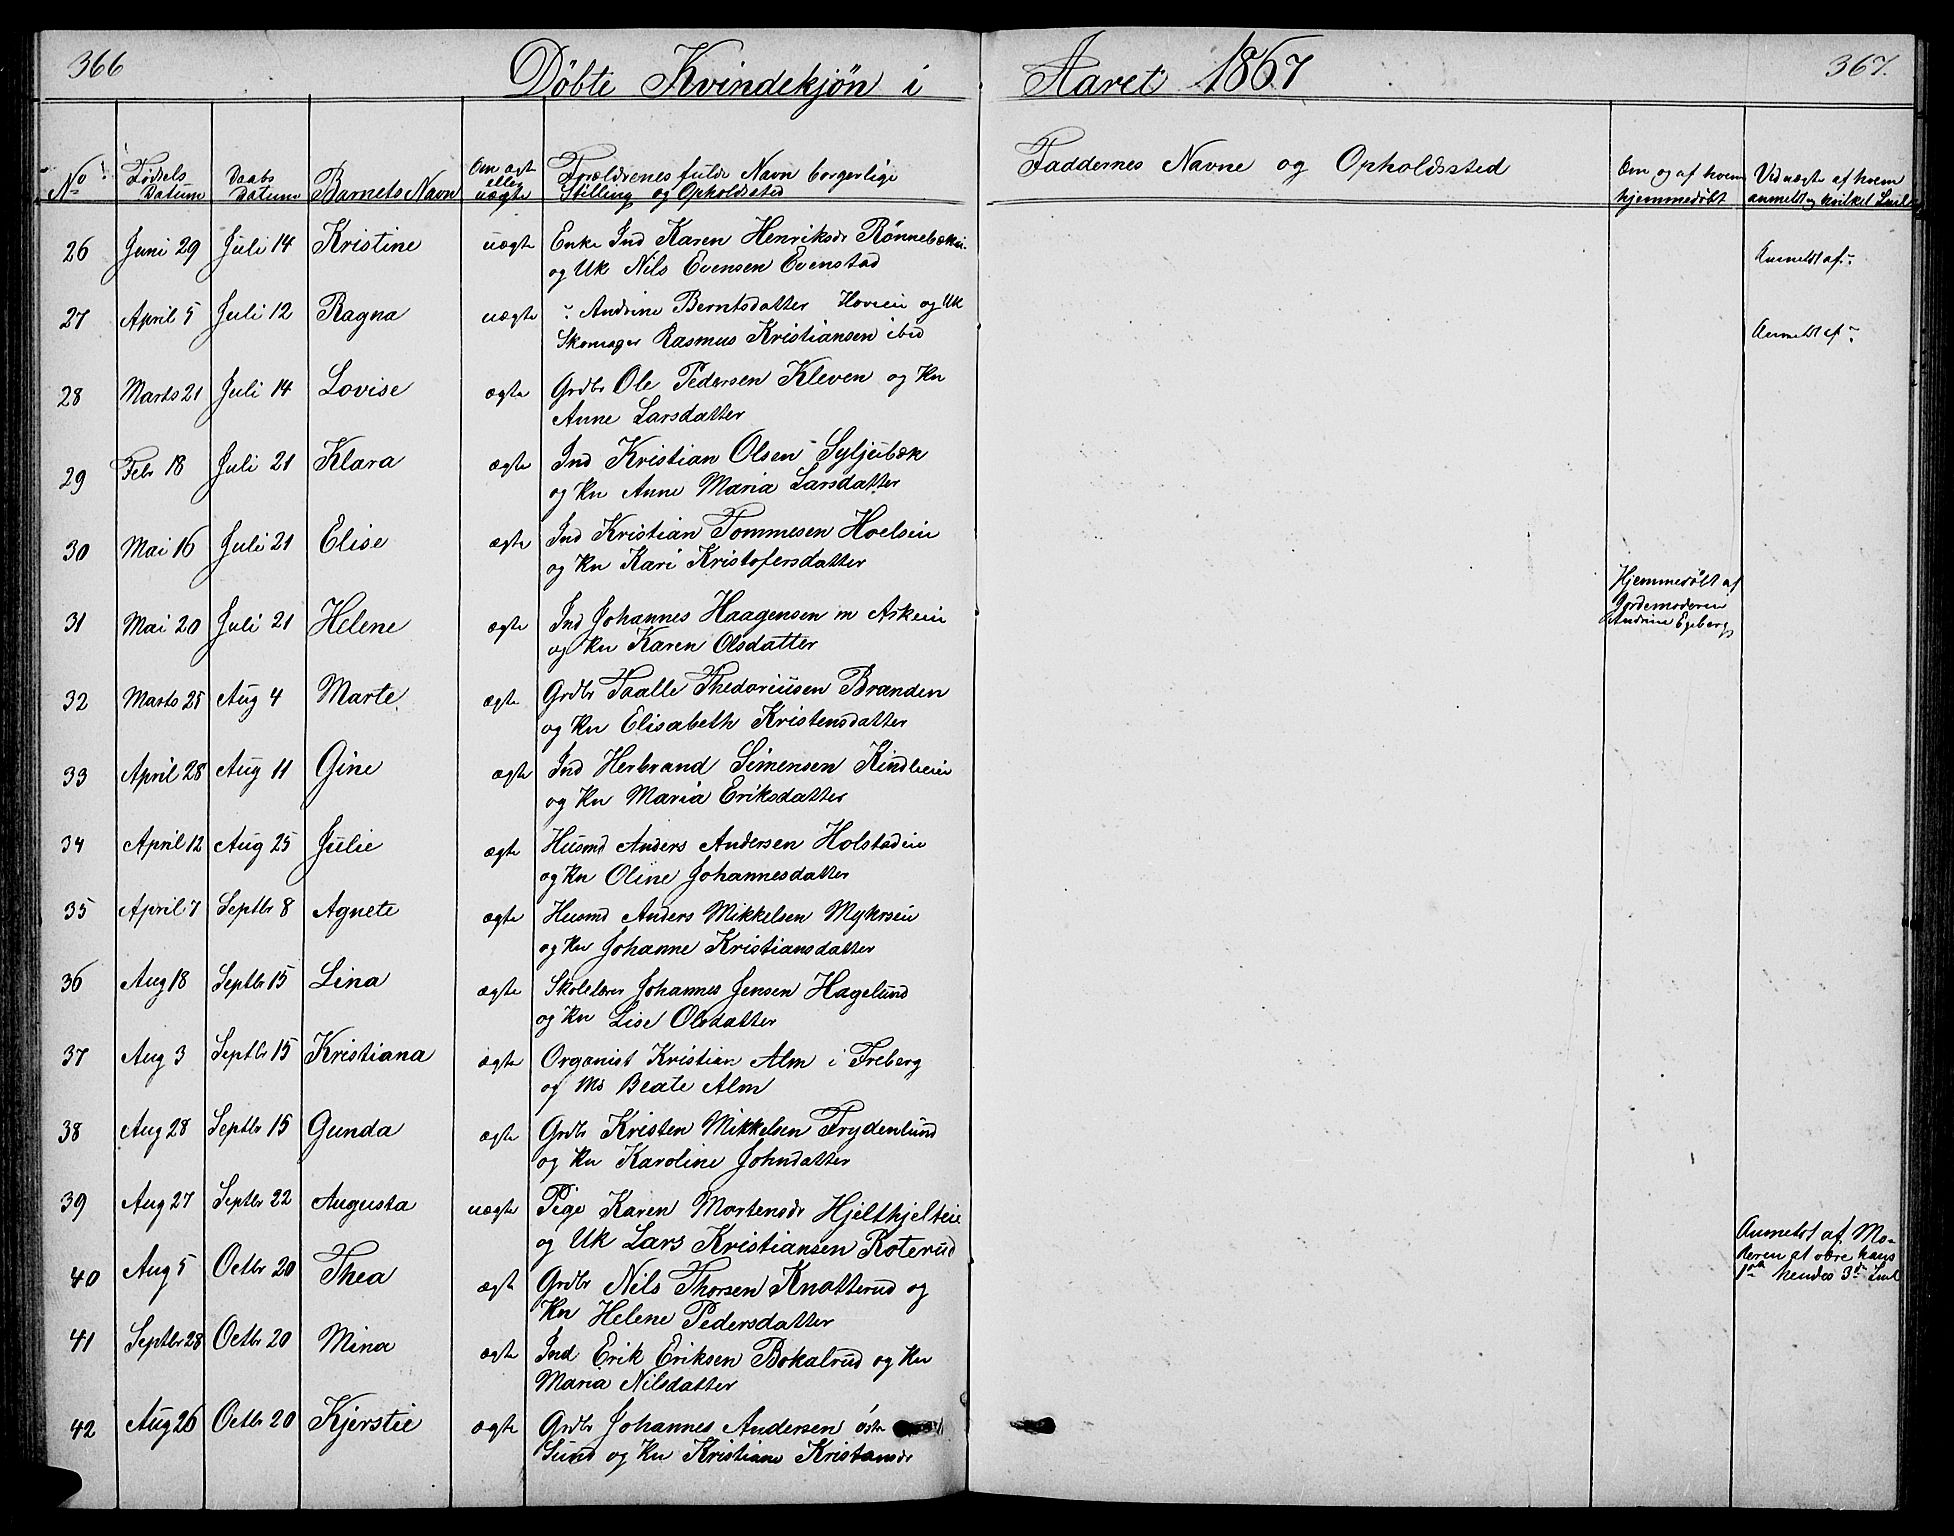 366
Döbte Kvindekjön i Aaret 1867
367.
No Födsels Datum Daabs Datum Barnets Navn Om ægte eller uægte Forældrenes fulde Navn borgerlige Stilling og Opholdsted Faddernes Navne og Opholdssted Om og af hvem hjemmedöbt Vid uægte af hvem anmeldt og hvilket
26 Juni 29 Juli 14 Kristine uægte Enke Ind Karen Henriksdr
og Uk Nils Evensen Evenstad
Anmeldt af
27 April 5 Juli 12 Ragna uægte Andrine Berntsdatter Hoveie og Uk
Skomager Rasmus Kristiansen ibid
Anmeldt af
28 Marts 21 Juli 14 Lovise ægte Grdbr Ole Pedersen Kleven og Kn
Anne Larsdatter
29 Febr 18 Juli 21 Klara ægte Ind Kristian Olsen Syljubæk
og Kn Anne Maria Larsdatter
30 Mai 16 Juli 21 Elise ægte Ind Kristian Tommesen Hoelseie
og Kn Kari Kristofersdatter
31 Mai 20 Juli 21 Helene ægte Ind Johannes Haagensen m Askeie
og Kn Karen Olsdatter
Hjemmedöbt af
Jordemoderen
Andrine Egeberg
32 Marts 25 Aug 4 Marte ægte Grdbr Taalle Thedoriusen Branden
og Kn Elisabeth Kristensdatter
33 April 28 Aug 11 Gine ægte Ind Herbrand Simensen Kindlieie
og Kn Maria Eriksdatter
34 April 12 Aug 25 Julie ægte Husmd Anders Andersen Holstadeie
og Kn Oline Johannesdatter
35 April 7 Septbr 8 Agnete ægte Husmd Anders Mikkelsen Myhrseie
og Kn Johanne Kristiansdatter
36 Aug 18 Septbr 15 Lina ægte Skolelærer Johannes Jensen Hagelund
og Kn Lise Olsdatter
37 Aug 3 Septbr 15 Kristiana ægte Organist Kristian Alm i Freberg
og Md Beate Alm
38 Aug 28 Septbr 15 Gunda ægte Grdbr Kristen Mikkelsen Frydenlund
og Kn Karoline Johndatter
39 Aug 27 Septbr 22 Augusta uægte Pige Karen Mortensdr Hjelthjelteie
og Uk Lars Kristiansen Koterud
Anmeldt af Mo-
deren at være hans
1ste hendes 3die
40 Aug 5 Octbr 20 Thea ægte Grdbr Nils Thorsen Knatterud og
Kn Helene Pedersdatter
41 Septbr 28 Octbr 20 Mina ægte Ind Erik Eriksen Bokalrud og Kn
Maria Nilsdatter
42 Aug 26 Octbr 20 Kjerstie ægte Grdbr Johannes Andersen östre
Sund og Kn Kristiane Kristansdr